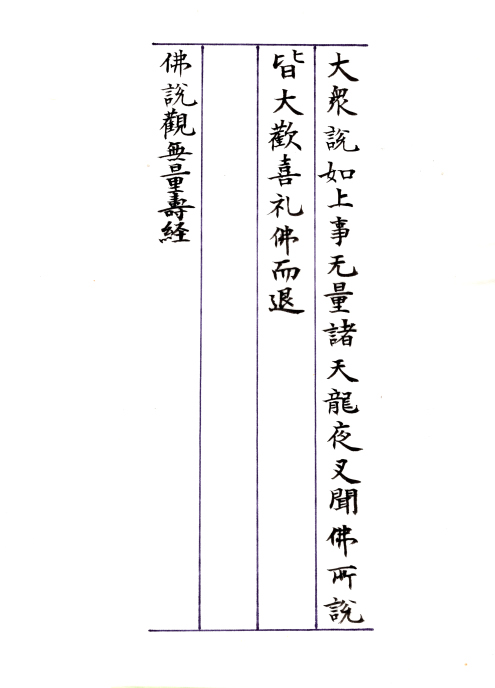 大衆説如上事无量諸天龍夜叉聞佛所説
皆大歡喜礼佛而退
佛説觀無量壽経